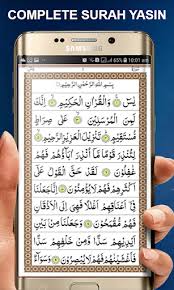 COMPLETE SURAH YASIN
10:01 am
بِسْمِ اللّٰهِ الرَّحْمٰنِ الرَّحِيْمِ
يٰسٓ ۝ وَالْقُرْاٰنِ الْحَكِيْمِ ۝ اِنَّكَ
لَمِنَ الْمُرْسَلِيْنَ ۝ عَلٰى صِرَاطٍ
مُّسْتَقِيْمٍ ۝ تَنْزِيْلَ الْعَزِيْزِ الرَّحِيْمِ ۝
لِتُنْذِرَ قَوْمًا مَّآ اُنْذِرَ اٰبَآؤُهُمْ فَهُمْ
غٰفِلُوْنَ ۝ لَقَدْ حَقَّ الْقَوْلُ عَلٰٓى اَكْثَرِهِمْ
فَهُمْ لَا يُؤْمِنُوْنَ ۝ اِنَّا جَعَلْنَا
فِيْٓ اَعْنَاقِهِمْ اَغْلٰلًا فَهِيَ اِلَى الْاَذْقَانِ
فَهُمْ مُّقْمَحُوْنَ ۝ وَجَعَلْنَا مِنْۢ بَيْنِ
اَيْدِيْهِمْ سَدًّا وَّمِنْ خَلْفِهِمْ سَدًّا
فَاَغْشَيْنٰهُمْ فَهُمْ لَا يُبْصِرُوْنَ